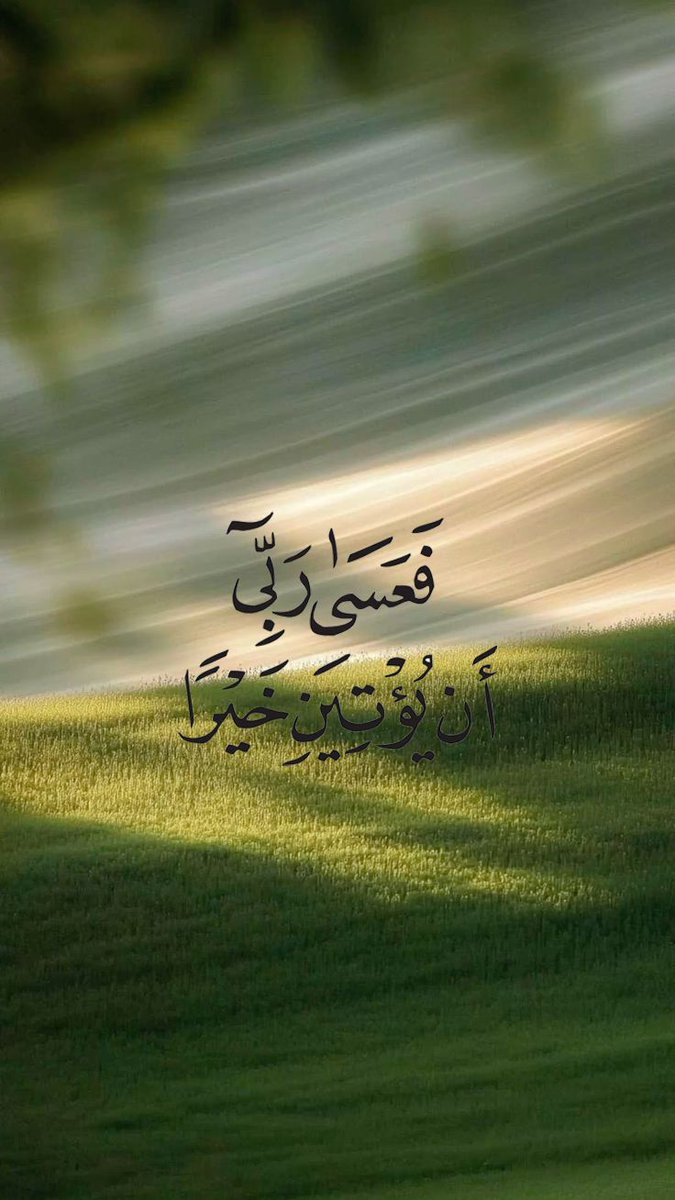 فَعَسَىٰ رَبِّيٓ
أَن يُؤْتِيَنِ خَيْرًا